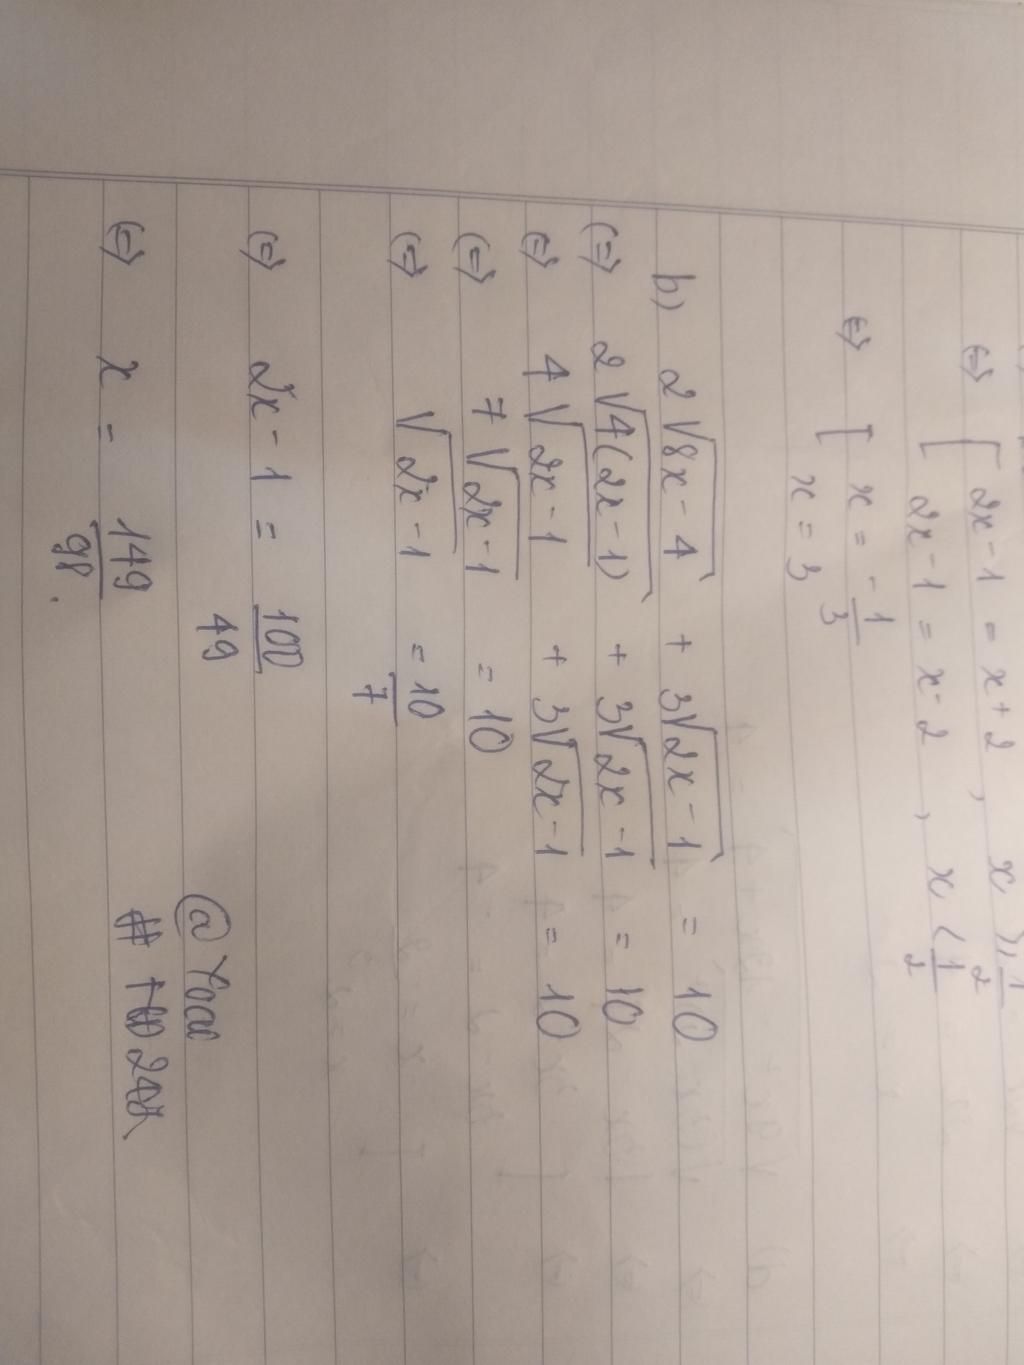 ⇔ [ 2x-1 = x+2 , x ≥ 1/2
2x-1 = x-2 , x < 1/2
⇔ [ x = -1/3
x = 3
b) 2√(8x-4) + 3√(2x-1) = 10
⇔ 2√(4(2x-1)) + 3√(2x-1) = 10
⇔ 4√(2x-1) + 3√(2x-1) = 10
⇔ 7√(2x-1) = 10
⇔ √(2x-1) = 10/7
⇔ 2x-1 = 100/49
⇔ x = 149/98.